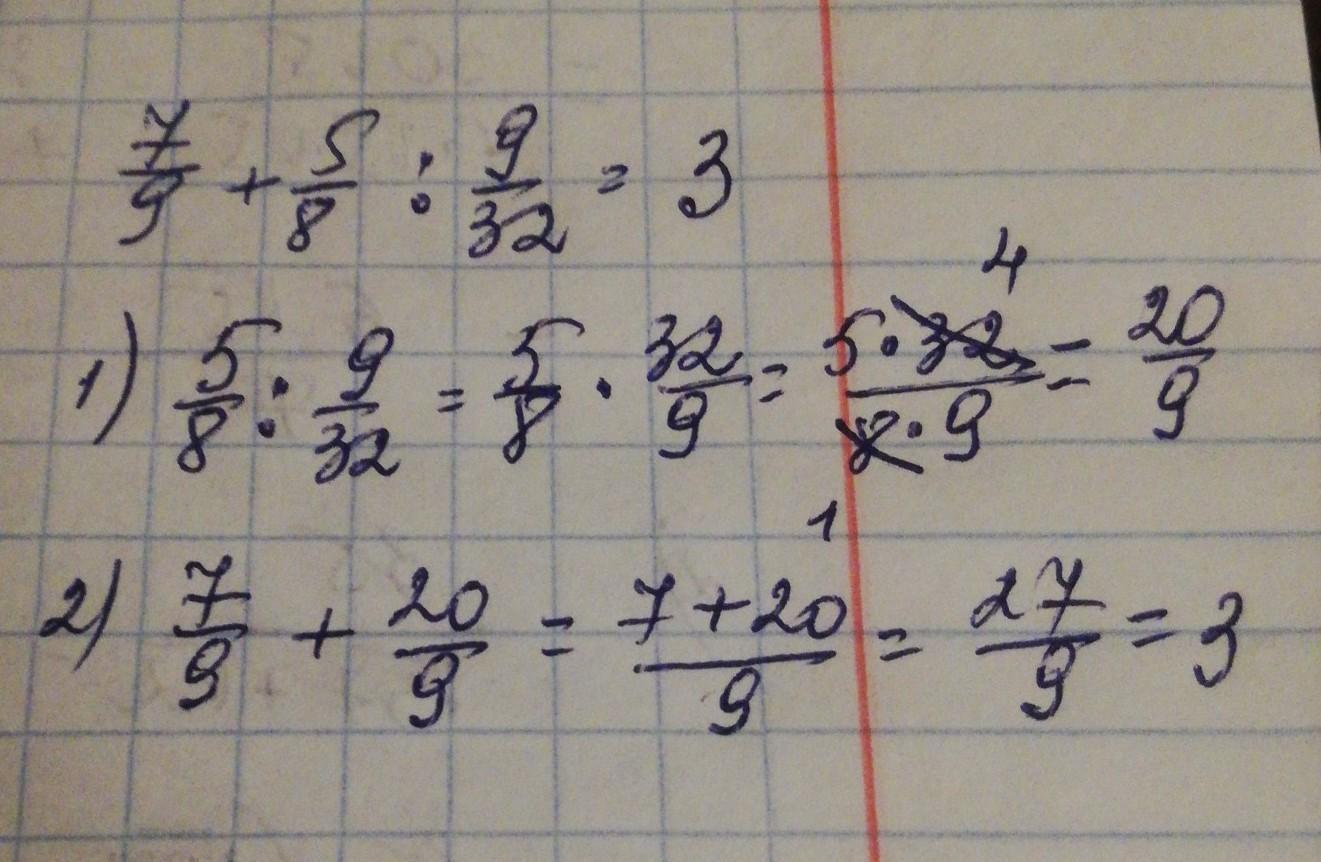 7/9 + 5/8 : 9/32 = 3
1) 5/8 : 9/32 = 5/8 · 32/9 = 5·32/8·9 = 20/9
4
1
2) 7/9 + 20/9 = 7+20/9 = 27/9 = 3